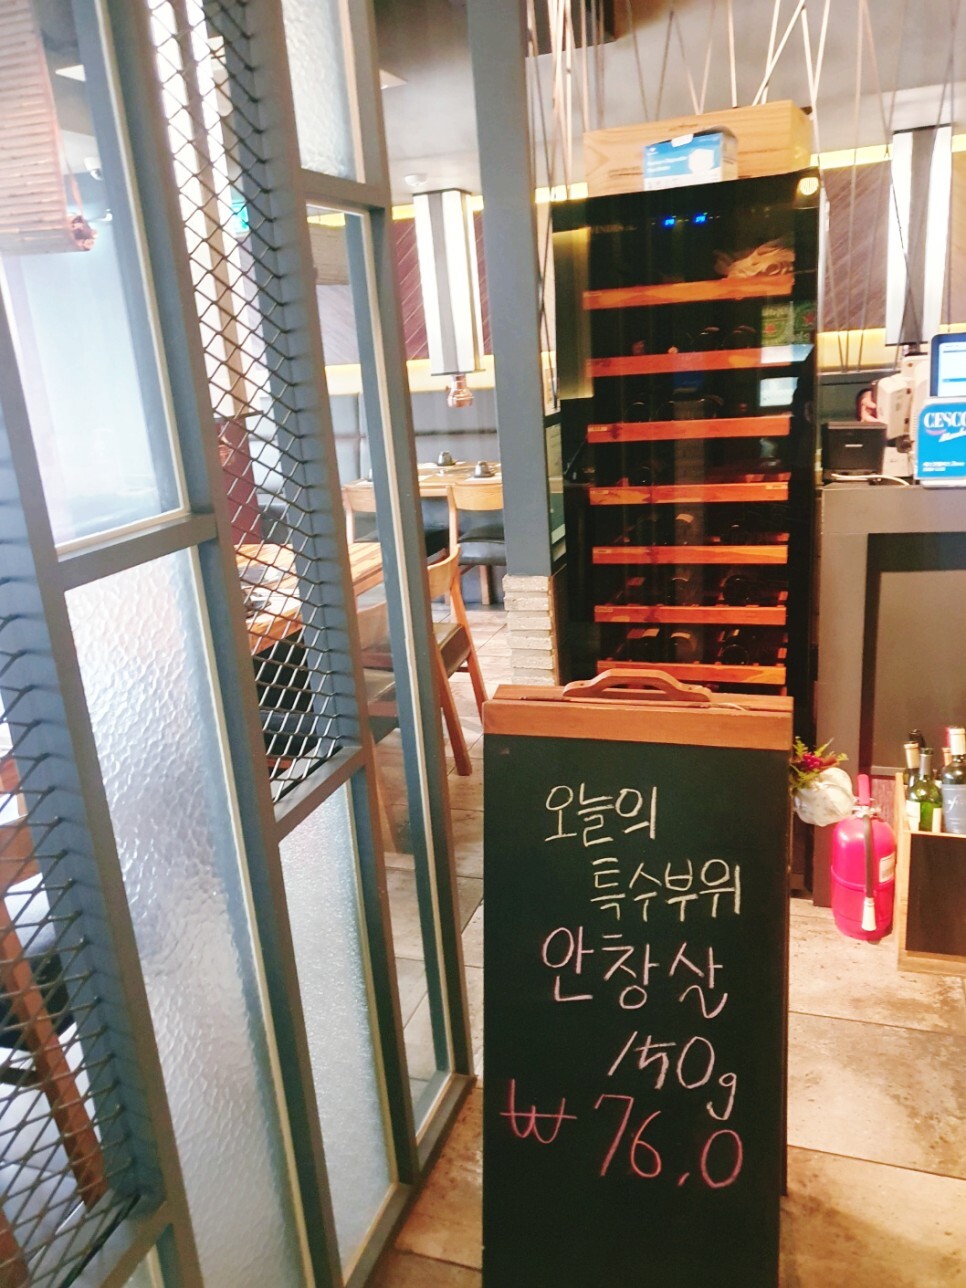 오늘의
특수부위
안창살
150g
₩76.0
CESCO